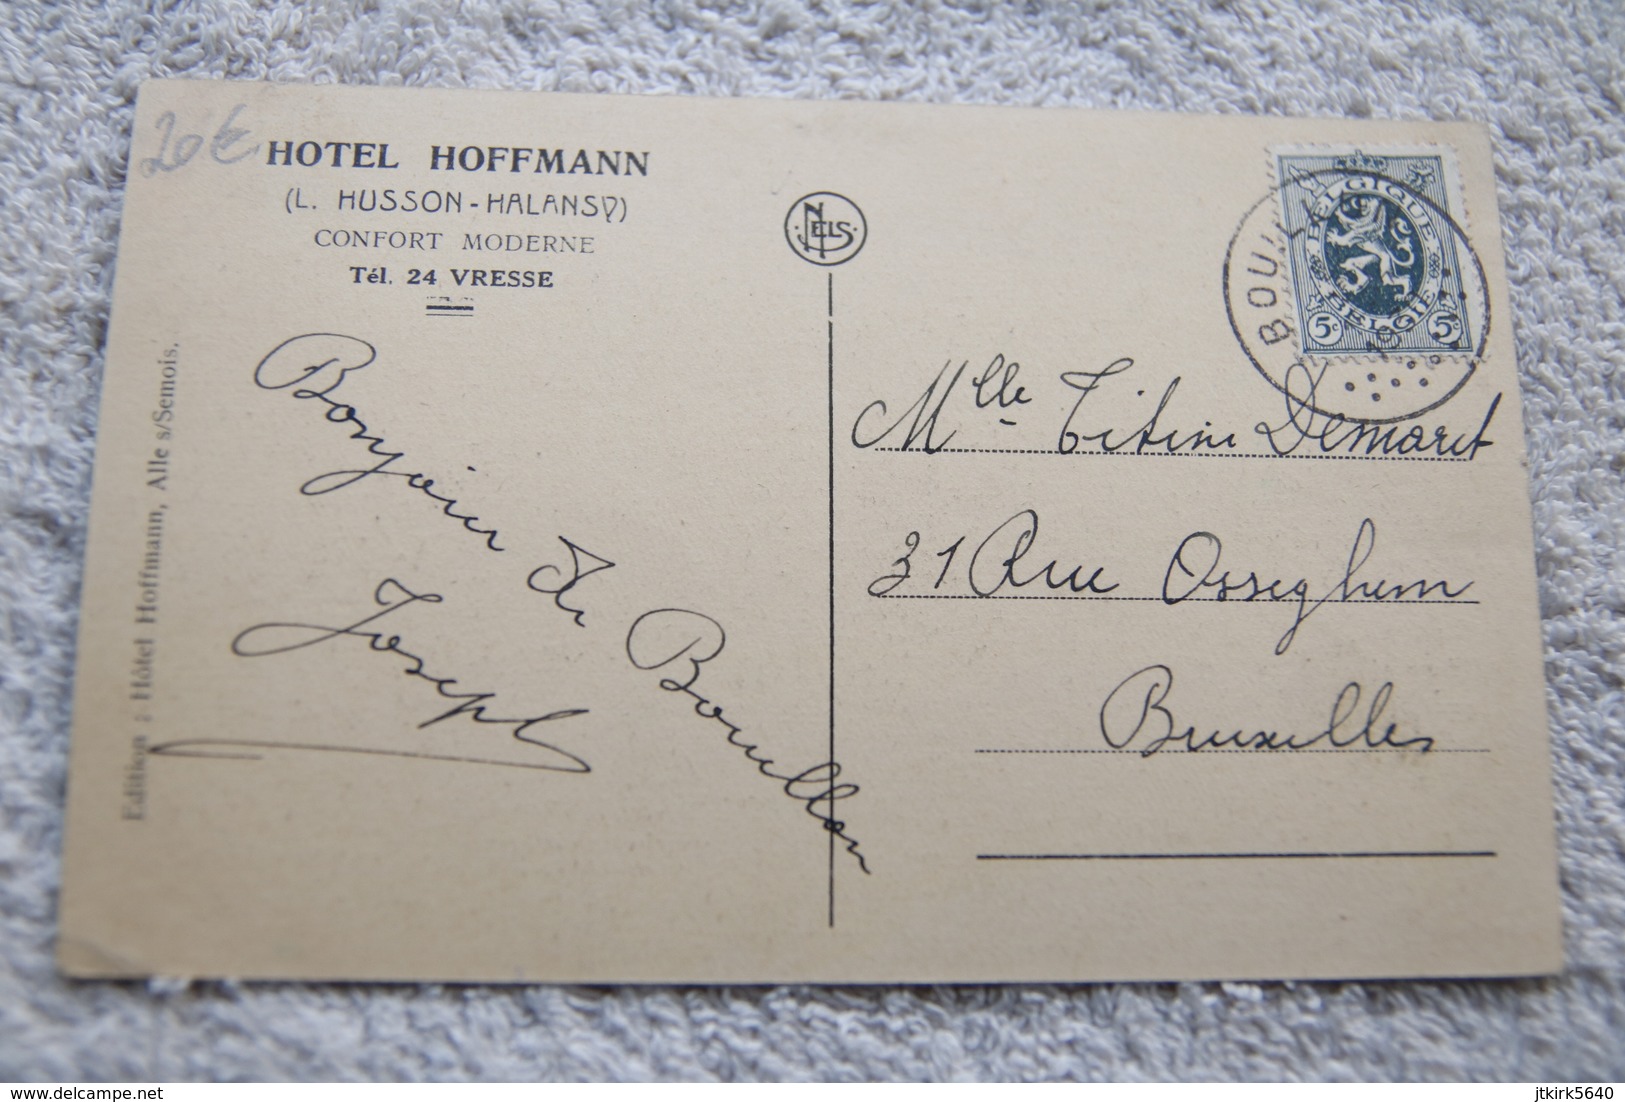 20€
HOTEL HOFFMANN
(L. HUSSON-HALANSY)
CONFORT MODERNE
Tél. 24 VRESSE
Edition : Hôtel Hoffmann, Alle s/Semois.
Bonjour de Bouillon
Joseph
NELS
BELGIQUE
BELGIE
5c 5c
BOUILLON
Mlle Titine Demaret
31 Rue Osseghem
Bruxelles
www.delcampe.net
jtkirk5640